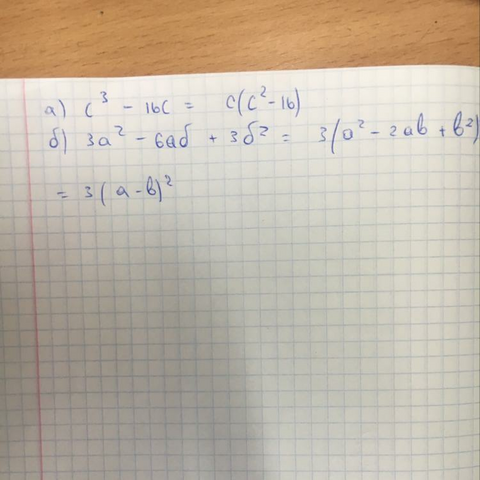 а) c³ - 16c = c(c² - 16)
б) 3a² - 6aб + 3б² = 3(a² - 2ab + b²)
= 3(a - b)²